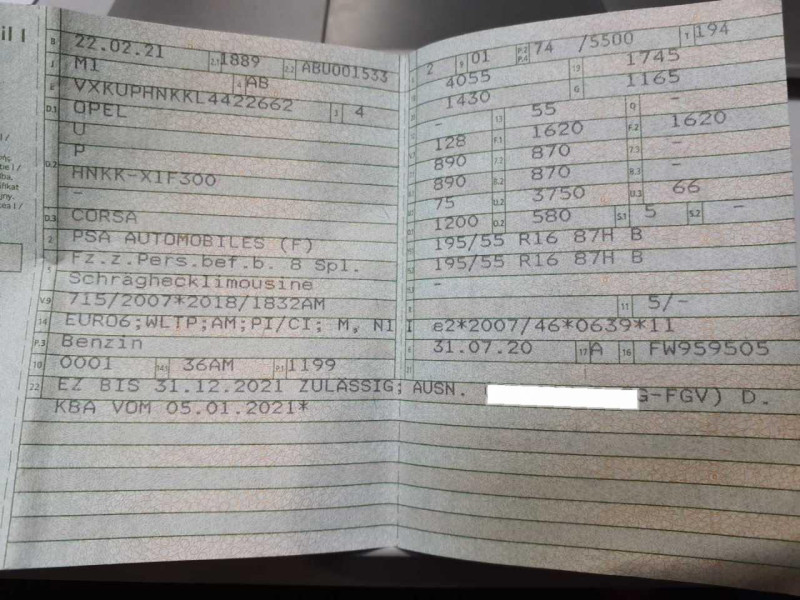 il I
B 22.02.21 2.1 1889 2.2 ABU001533
J M1 4 AB
E VXKUPHNKKL4422662 3 4
D.1 OPEL
U
D.2 P
HNKK-X1F300
-
D.3 CORSA
2 PSA AUTOMOBILES (F)
5 Fz.z.Pers.bef.b. 8 Spl.
Schräghecklimousine
V.9 715/2007*2018/1832AM
14 EURO6;WLTP;AM;PI/CI; M, N1 I
P.3 Benzin
10 0001 14.1 36AM P.1 1199
22 EZ BIS 31.12.2021 ZULÄSSIG; AUSN. G-FGV) D.
KBA VOM 05.01.2021*
2 9 01 P.2 P.4 74 /5500 T 194
4055 19 1745
1430 G 1165
- 13 55 Q -
128 F.1 1620 F.2 1620
890 7.2 870 7.3 -
890 8.2 870 8.3 -
75 U.2 3750 U.3 66
1200 O.2 580 S.1 5 S.2 -
195/55 R16 87H B
195/55 R16 87H B
-
11 5/-
e2*2007/46*0639*11
6 31.07.20 17 A 16 FW959505
21